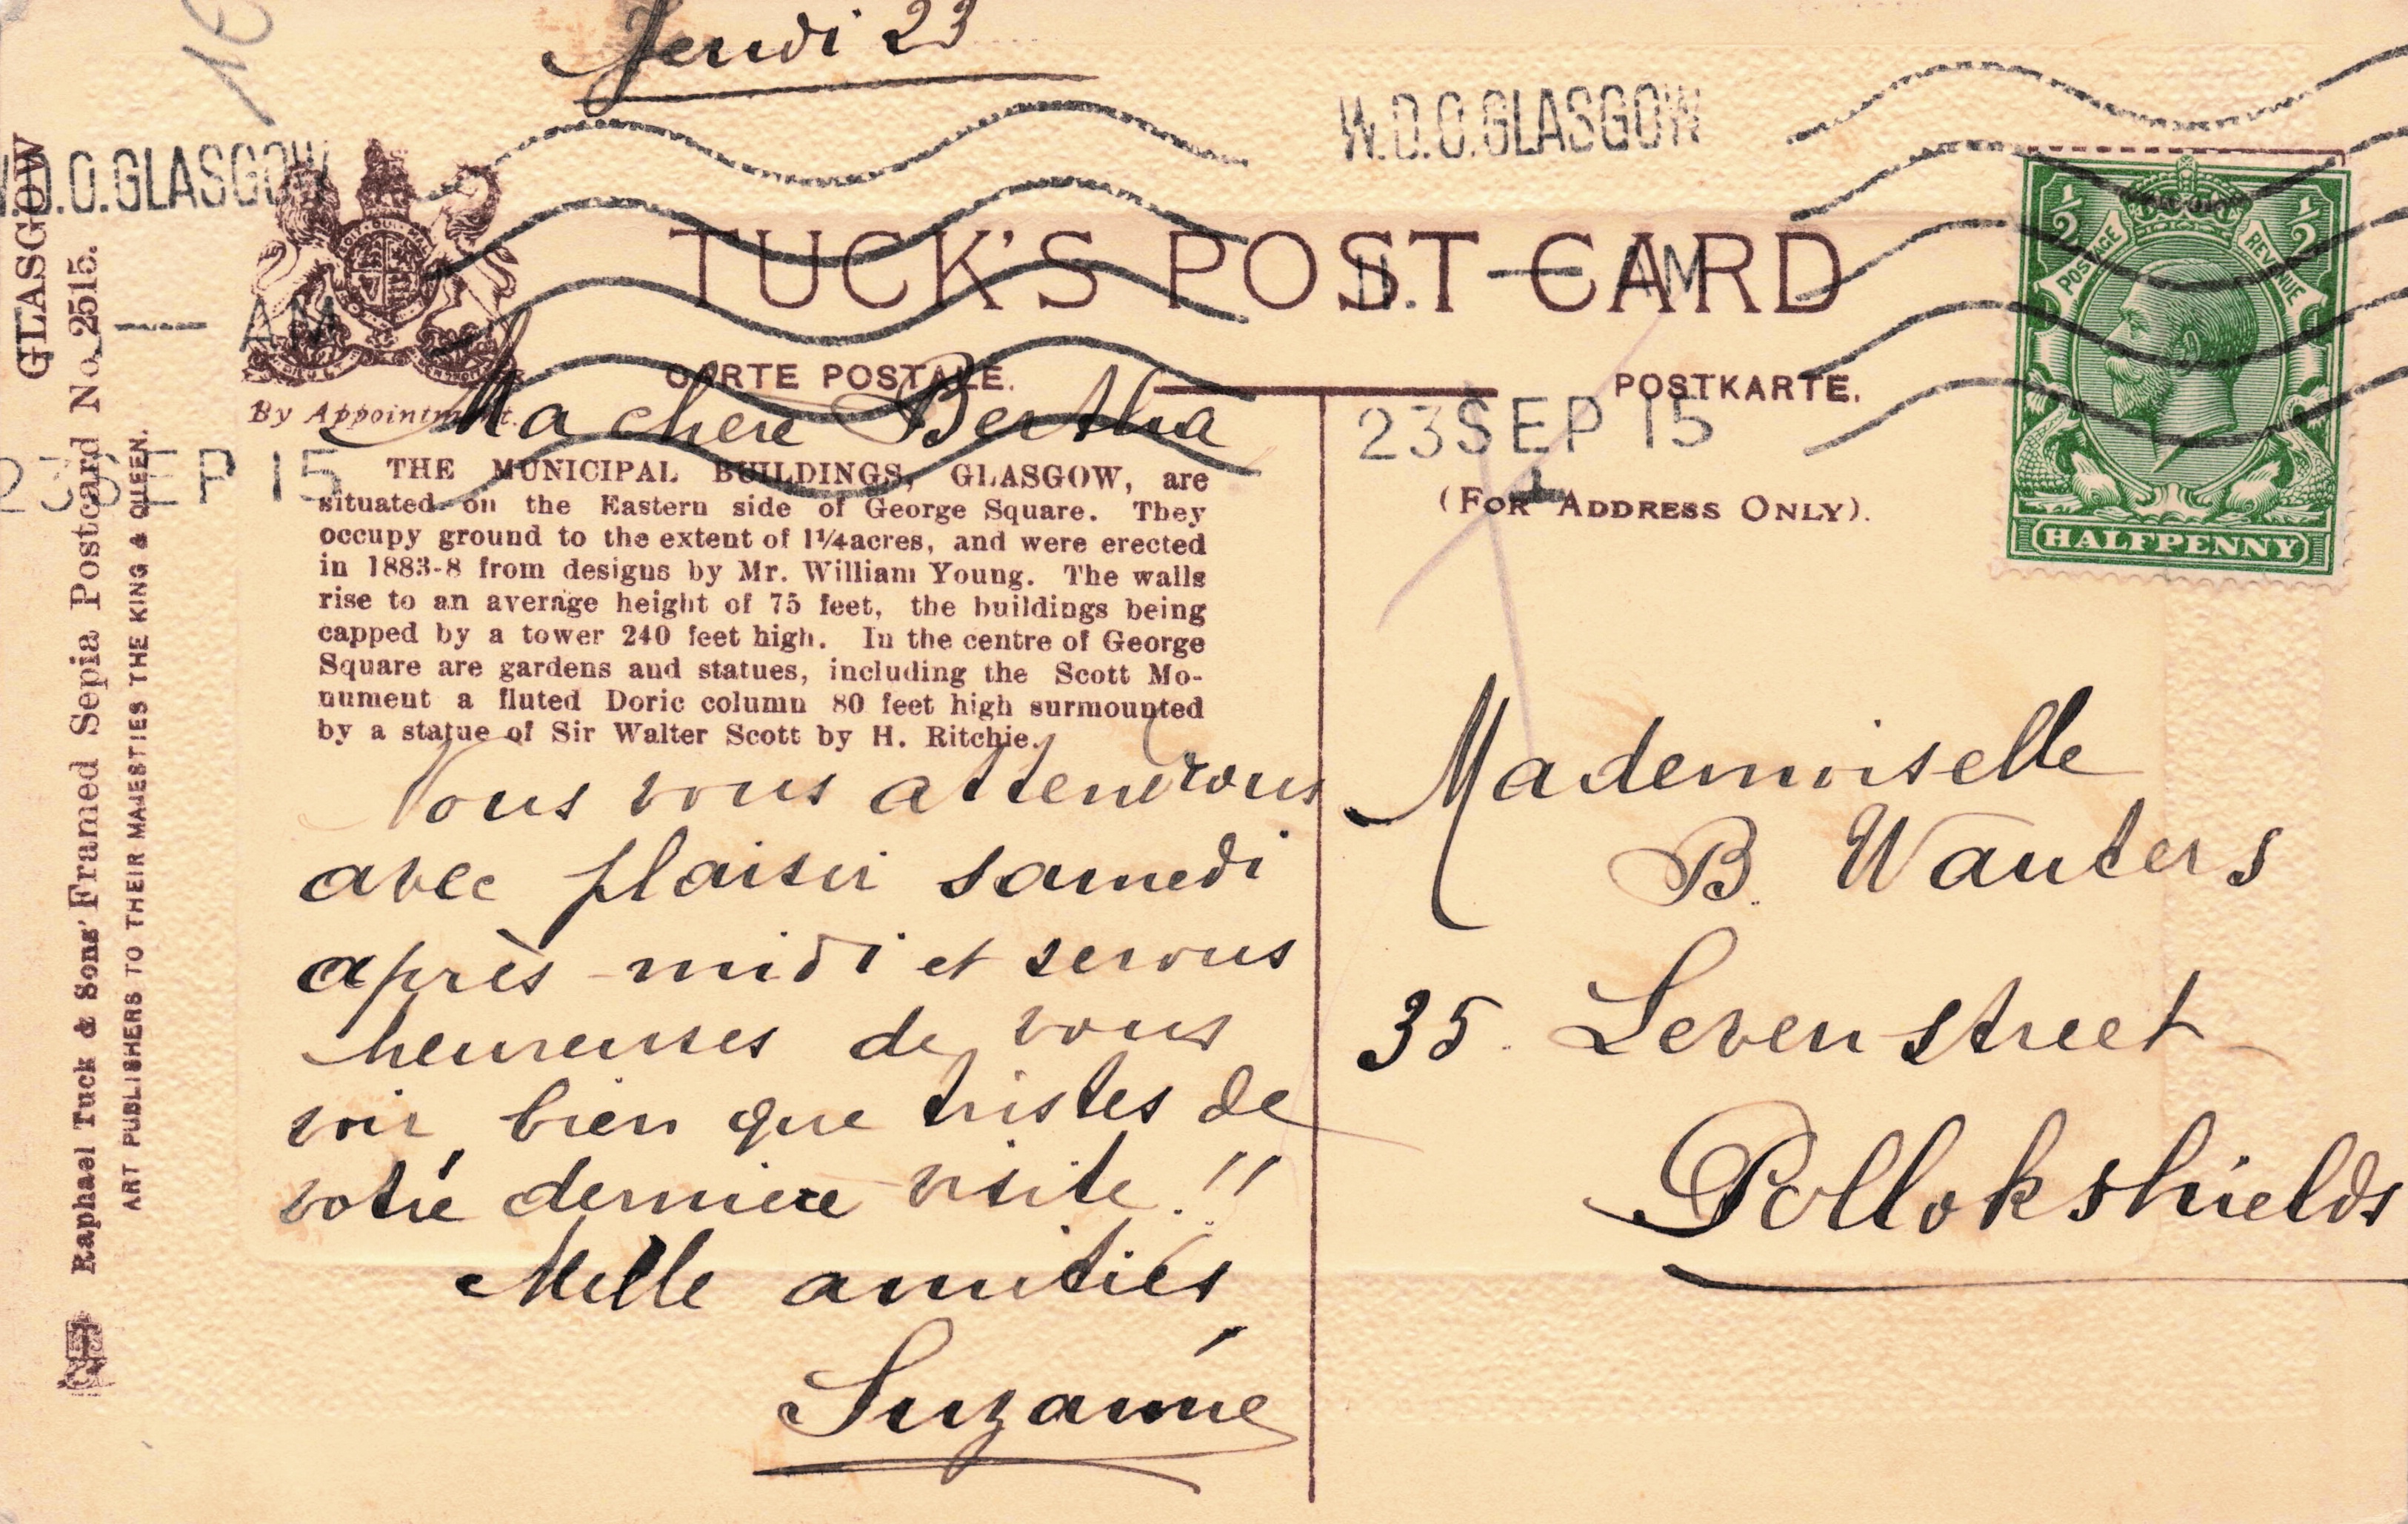 Jeudi 23
W.D.O. GLASGOW
W.D.O. GLASGOW
TUCK'S POST CARD
11. — AM
— AM
CARTE POSTALE.
POSTKARTE.
By Appointment.
23 SEP 15
23 SEP 15
(FOR ADDRESS ONLY).
POSTAGE
REVENUE
1/2
1/2
HALFPENNY
GLASGOW
Raphael Tuck & Sons' Framed Sepia Postcard No. 2515.
ART PUBLISHERS TO THEIR MAJESTIES THE KING & QUEEN.
Ma chere Bertha
THE MUNICIPAL BUILDINGS, GLASGOW, are
situated on the Eastern side of George Square. They
occupy ground to the extent of 1¼ acres, and were erected
in 1883-8 from designs by Mr. William Young. The walls
rise to an average height of 75 feet, the buildings being
capped by a tower 240 feet high. In the centre of George
Square are gardens and statues, including the Scott Mo-
nument a fluted Doric column 80 feet high surmounted
by a statue of Sir Walter Scott by H. Ritchie.
Nous vous attendrons
avec plaisir samedi
après-midi et serons
heureuses de vous
voir, bien que tristes de
votre derniere visite.!!
Mille amitiés
Suzanne
Mademoiselle
B. Wauters
35. Leven street
Pollokshields